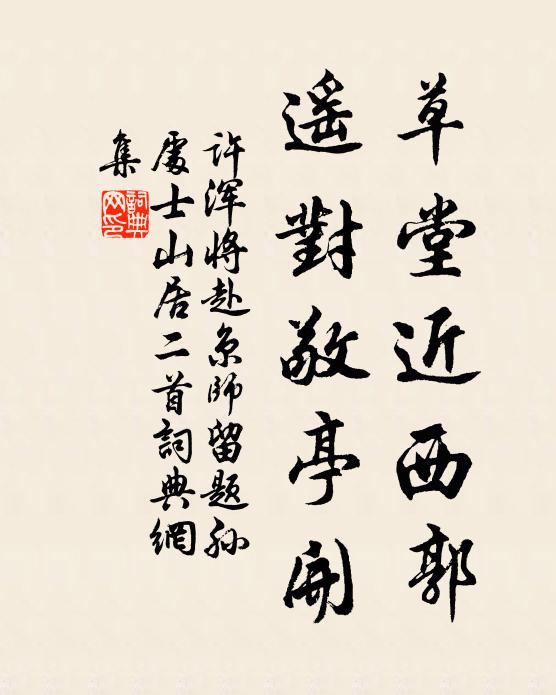 草堂近西郭
遥對敬亭開
许渾將赴京師留题孙
處士山居二首詞典網
集
詞典
网印